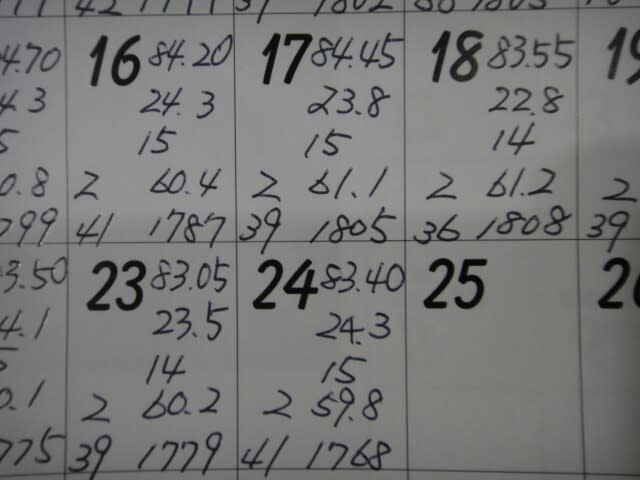 42 1777 37 1802 1803
4.70 16 84.20 17 84.45 18 83.55 19
4.3 24.3 23.8 22.8
5 15 15 14
0.8 2 60.4 2 61.1 2 61.2 2
799 41 1787 39 1805 36 1808 39
3.50 23 83.05 24 83.40 25 26
4.1 23.5 24.3
14 15
0.1 2 60.2 2 59.8
775 39 1779 41 1768